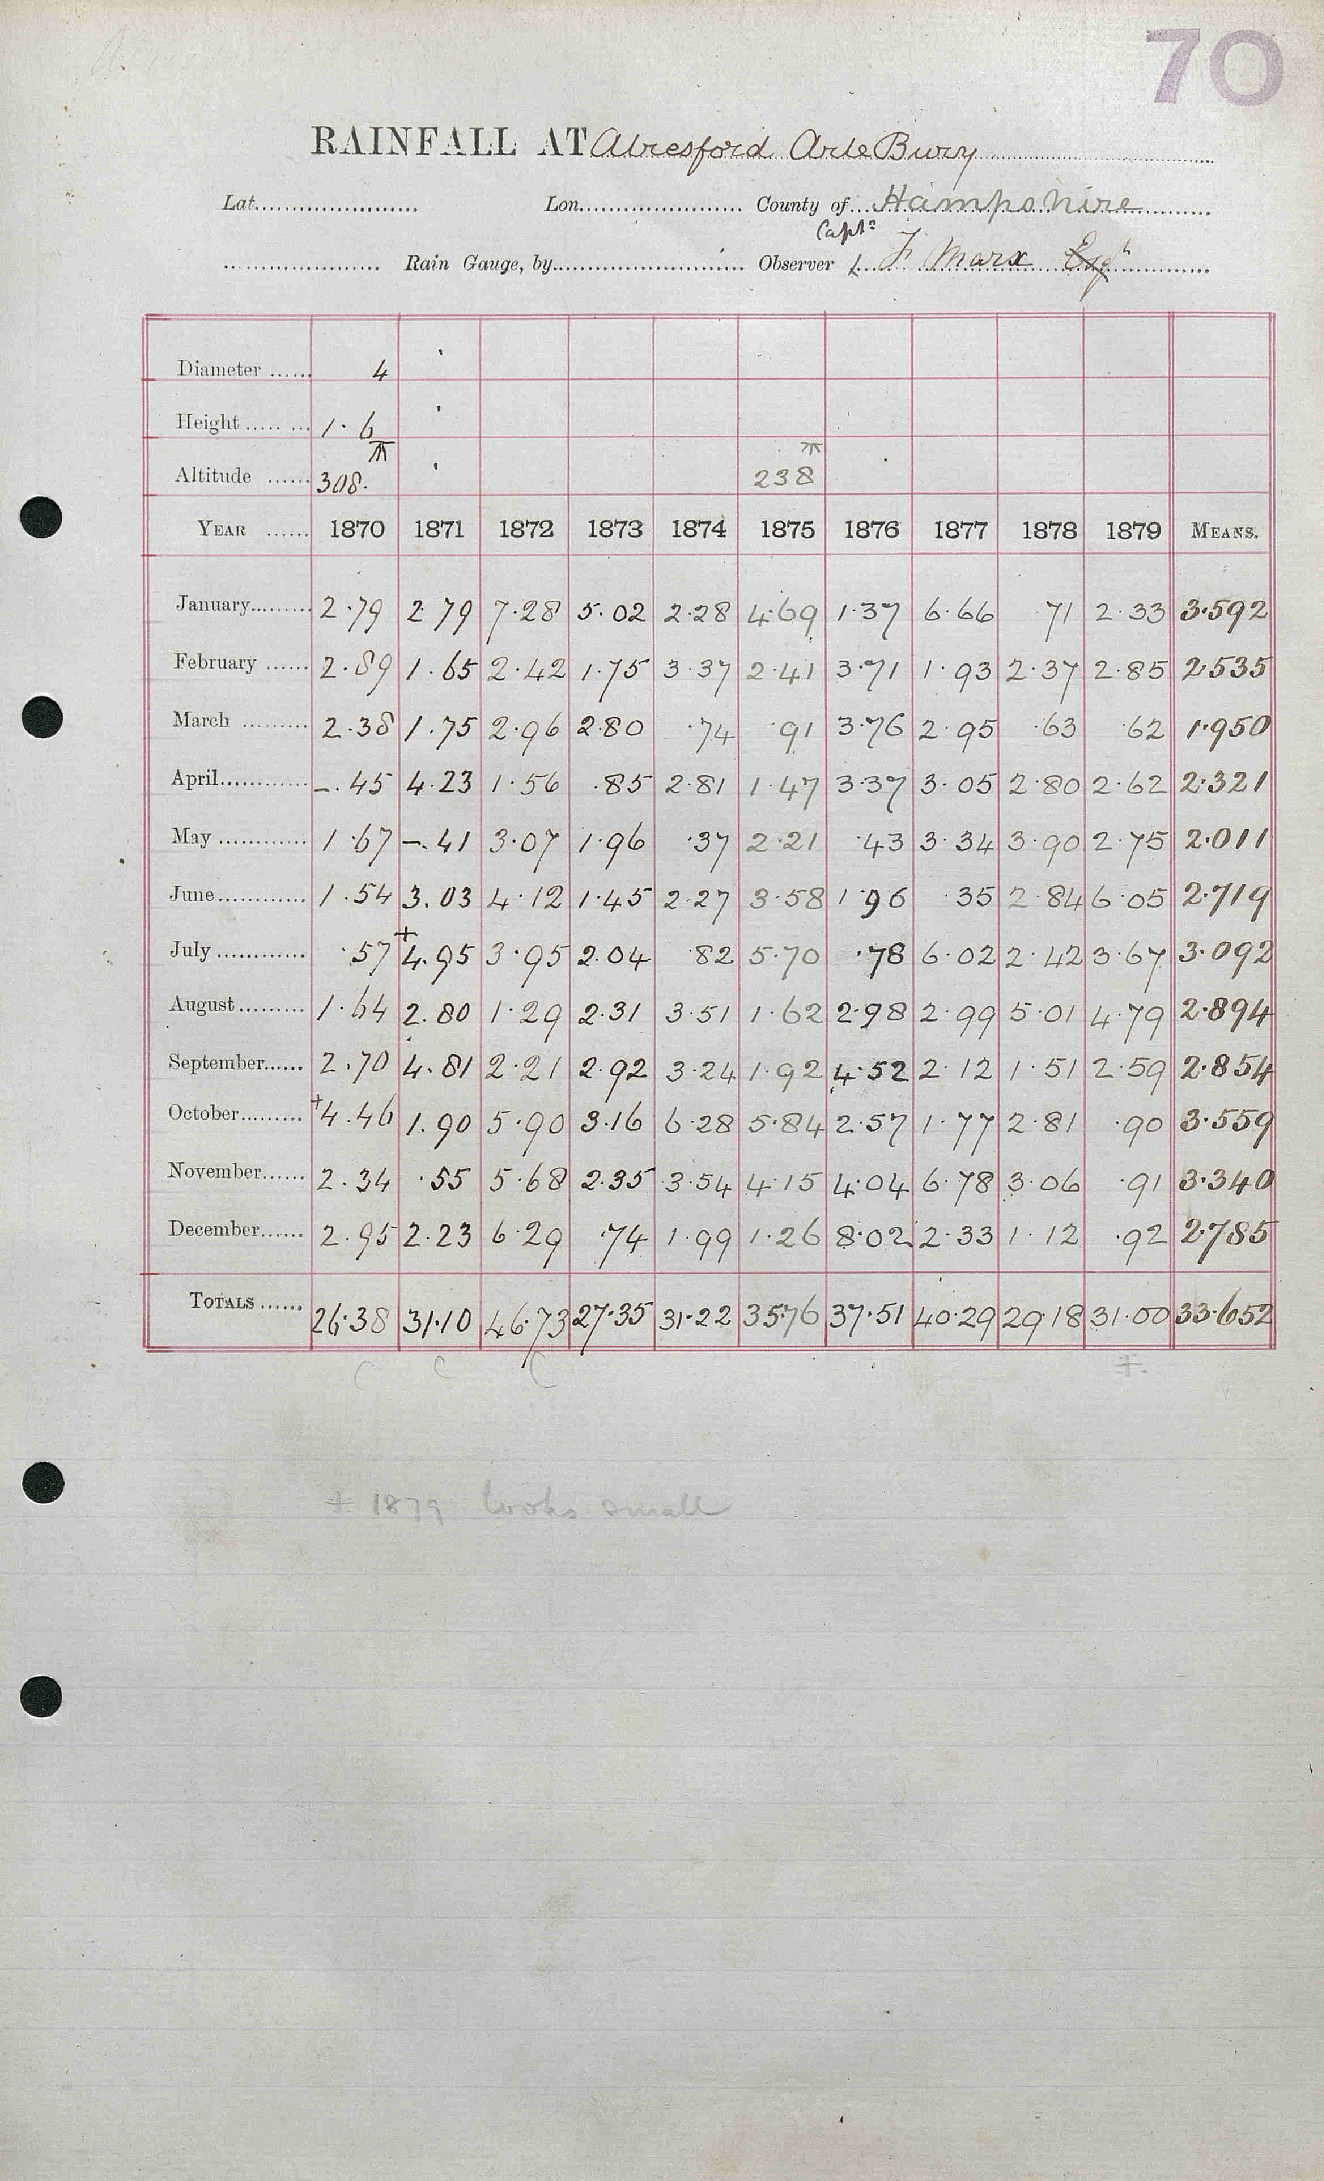 70
RAINFALL AT Alresford Arle Bury
Lat. Lon. County of Hampshire
Capt:
Rain Gauge, by Observer F Marx Esqr
Diameter 4
Height 1.6
Altitude 308. 238
YEAR 1870 1871 1872 1873 1874 1875 1876 1877 1878 1879 MEANS.
January 2.79 2.79 7.28 5.02 2.28 4.69 1.37 6.66 .71 2.33 3.592
February 2.89 1.65 2.42 1.75 3.37 2.41 3.71 1.93 2.37 2.85 2.535
March 2.38 1.75 2.96 2.80 .74 .91 3.76 2.95 .63 .62 1.950
April -.45 4.23 1.56 .85 2.81 1.47 3.37 3.05 2.80 2.62 2.321
May 1.67 -.41 3.07 1.96 .37 2.21 .43 3.34 3.90 2.75 2.011
June 1.54 3.03 4.12 1.45 2.27 3.58 1.96 .35 2.84 6.05 2.719
July .57 +4.95 3.95 2.04 .82 5.70 .78 6.02 2.42 3.67 3.092
August 1.64 2.80 1.29 2.31 3.51 1.62 2.98 2.99 5.01 4.79 2.894
September 2.70 4.81 2.21 2.92 3.24 1.92 4.52 2.12 1.51 2.59 2.854
October +4.46 1.90 5.90 3.16 6.28 5.84 2.57 1.77 2.81 .90 3.559
November 2.34 .55 5.68 2.35 3.54 4.15 4.04 6.78 3.06 .91 3.340
December 2.95 2.23 6.29 .74 1.99 1.26 8.02 2.33 1.12 .92 2.785
TOTALS 26.38 31.10 46.73 27.35 31.22 35.76 37.51 40.29 29.18 31.00 33.652
C C C ‡.
‡ 1879 looks small